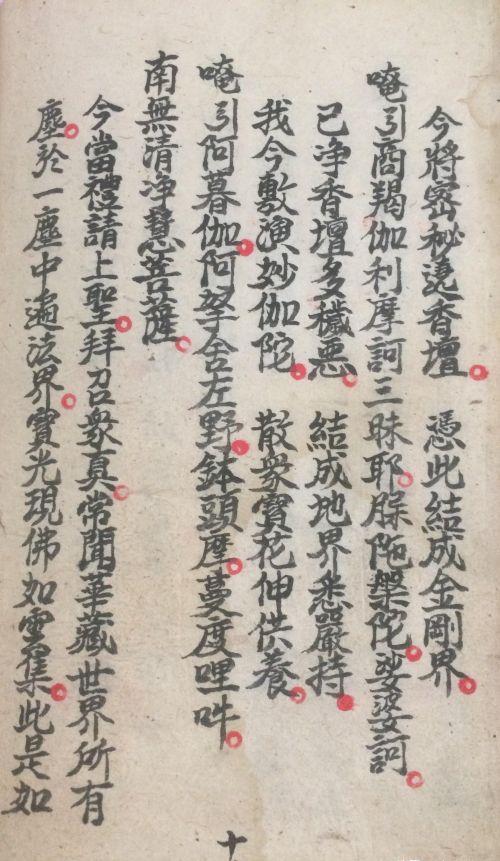 今將密秘遶香壇　憑此結成金剛界
唵引商羯伽利摩訶三昧耶𦜕陁槃陀娑婆訶
已净香壇多穢惡　結成地界悉嚴持
我今敷演妙伽陀　散衆寳花伸供養
唵引阿暮伽阿拏舍左野鉢頭摩蔓度哩吽
南無清净慧菩薩
今當禮請上聖拜召衆真常聞華藏世界所有
塵於一塵中遍法界寳光現佛如雲集此是如
十